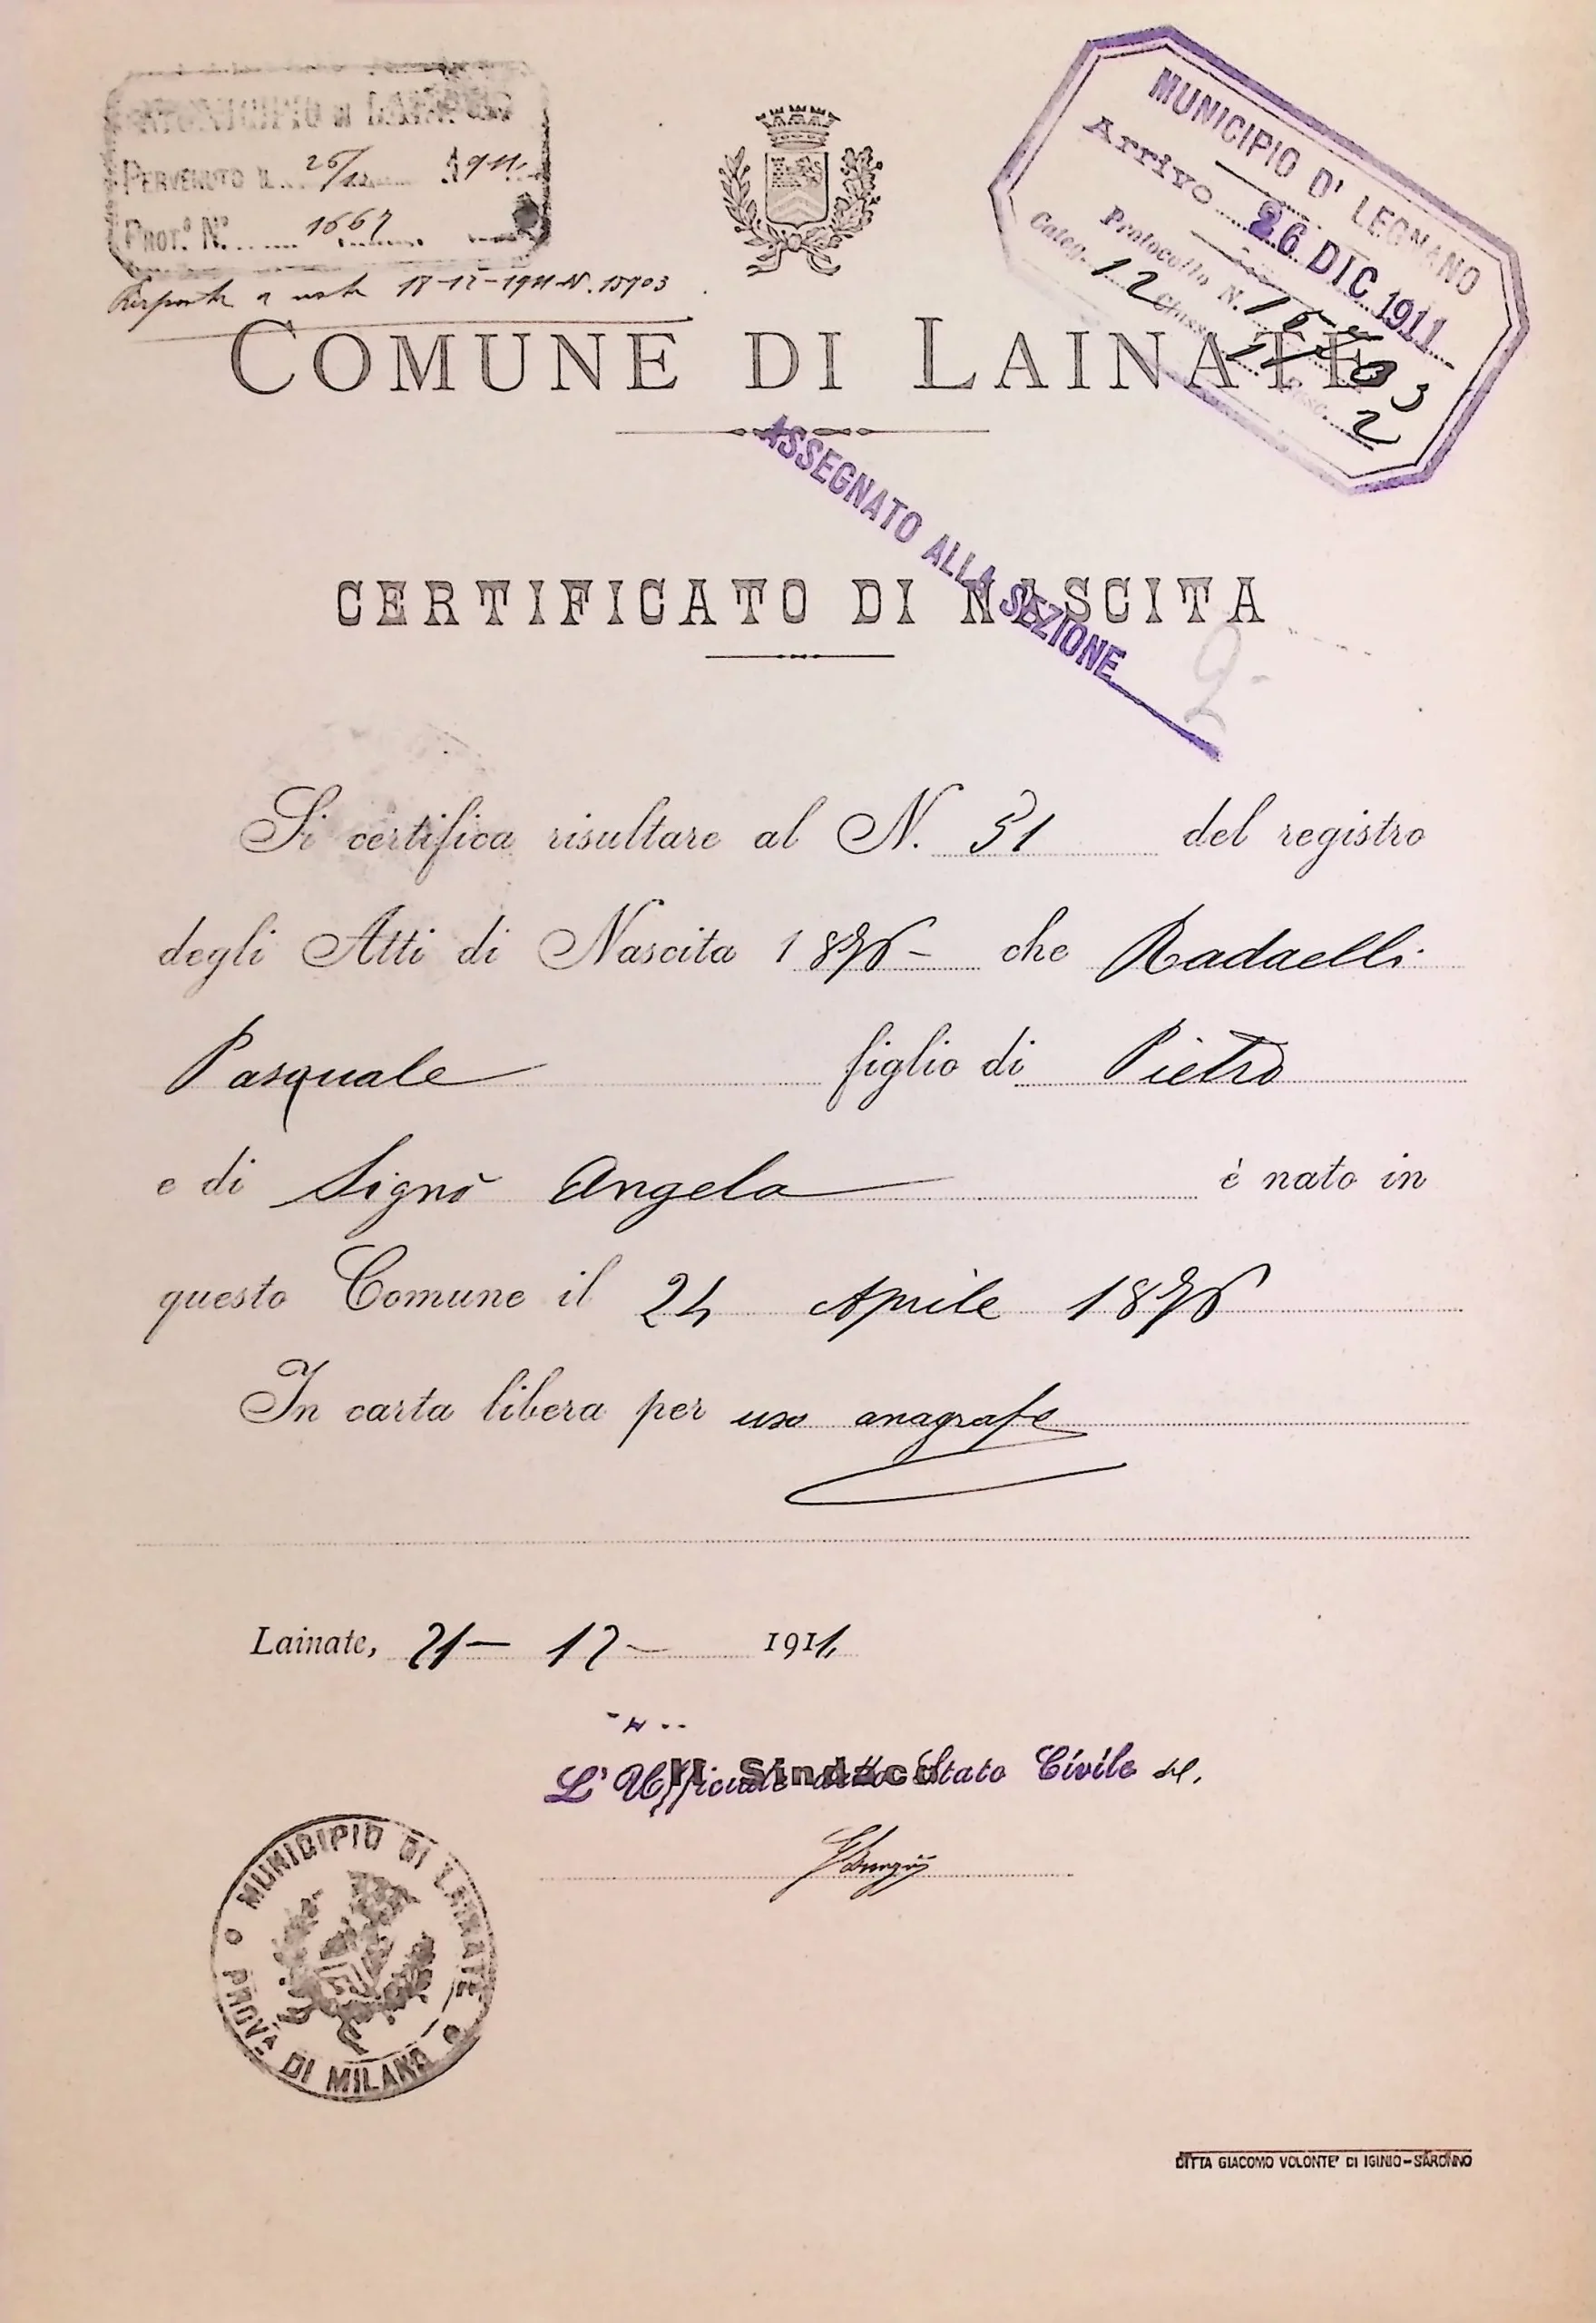 MUNICIPIO DI LAINATE
PERVENUTO IL 26/12 1911
PROT.º N.º 1667
Risposta a nota 18-12-1911 N. 15703
MUNICIPIO D' LEGNANO
Arrivo 26 DIC 1911
Protocollo N. 15703
Categ. 12 Class. 11 Fasc. 2
COMUNE DI LAINATE
ASSEGNATO ALLA SEZIONE 2
CERTIFICATO DI NASCITA
Si certifica risultare al N. 51 del registro
degli Atti di Nascita 1876 - che Radaelli
Pasquale figlio di Pietro
e di Signò Angela è nato in
questo Comune il 24 Aprile 1876
In carta libera per uso anagrafe
Lainate, 21 - 12 - 1911
Il Sindaco
L'Ufficiale dello Stato Civile
MUNICIPIO DI LAINATE
PROV.A DI MILANO
DITTA GIACOMO VOLONTE' DI IGINIO-SARONNO